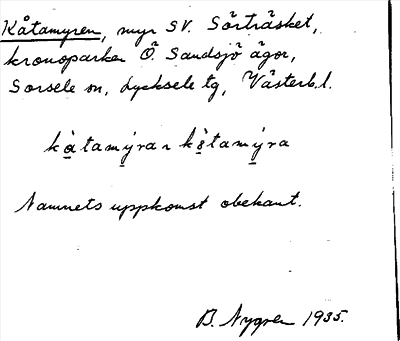 Kåtamyren, myr SV. Sörträsket,
kronoparken Ö. Sandsjö ägor,
Sorsele sn, Lycksele tg, Västerb. l.
kåtamýra
Namnets uppkomst obekant.
B. Nygren 1935.